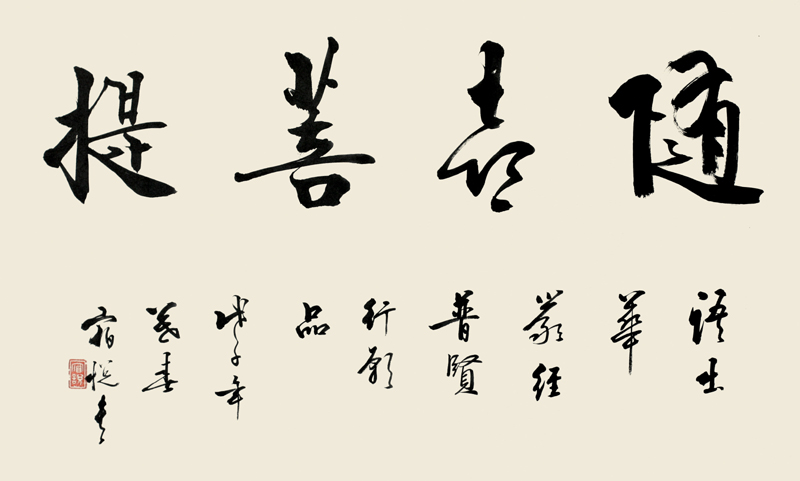 隨喜菩提
語出
華
嚴經
普賢
行願
品
戊子年
暮春
宿悦書